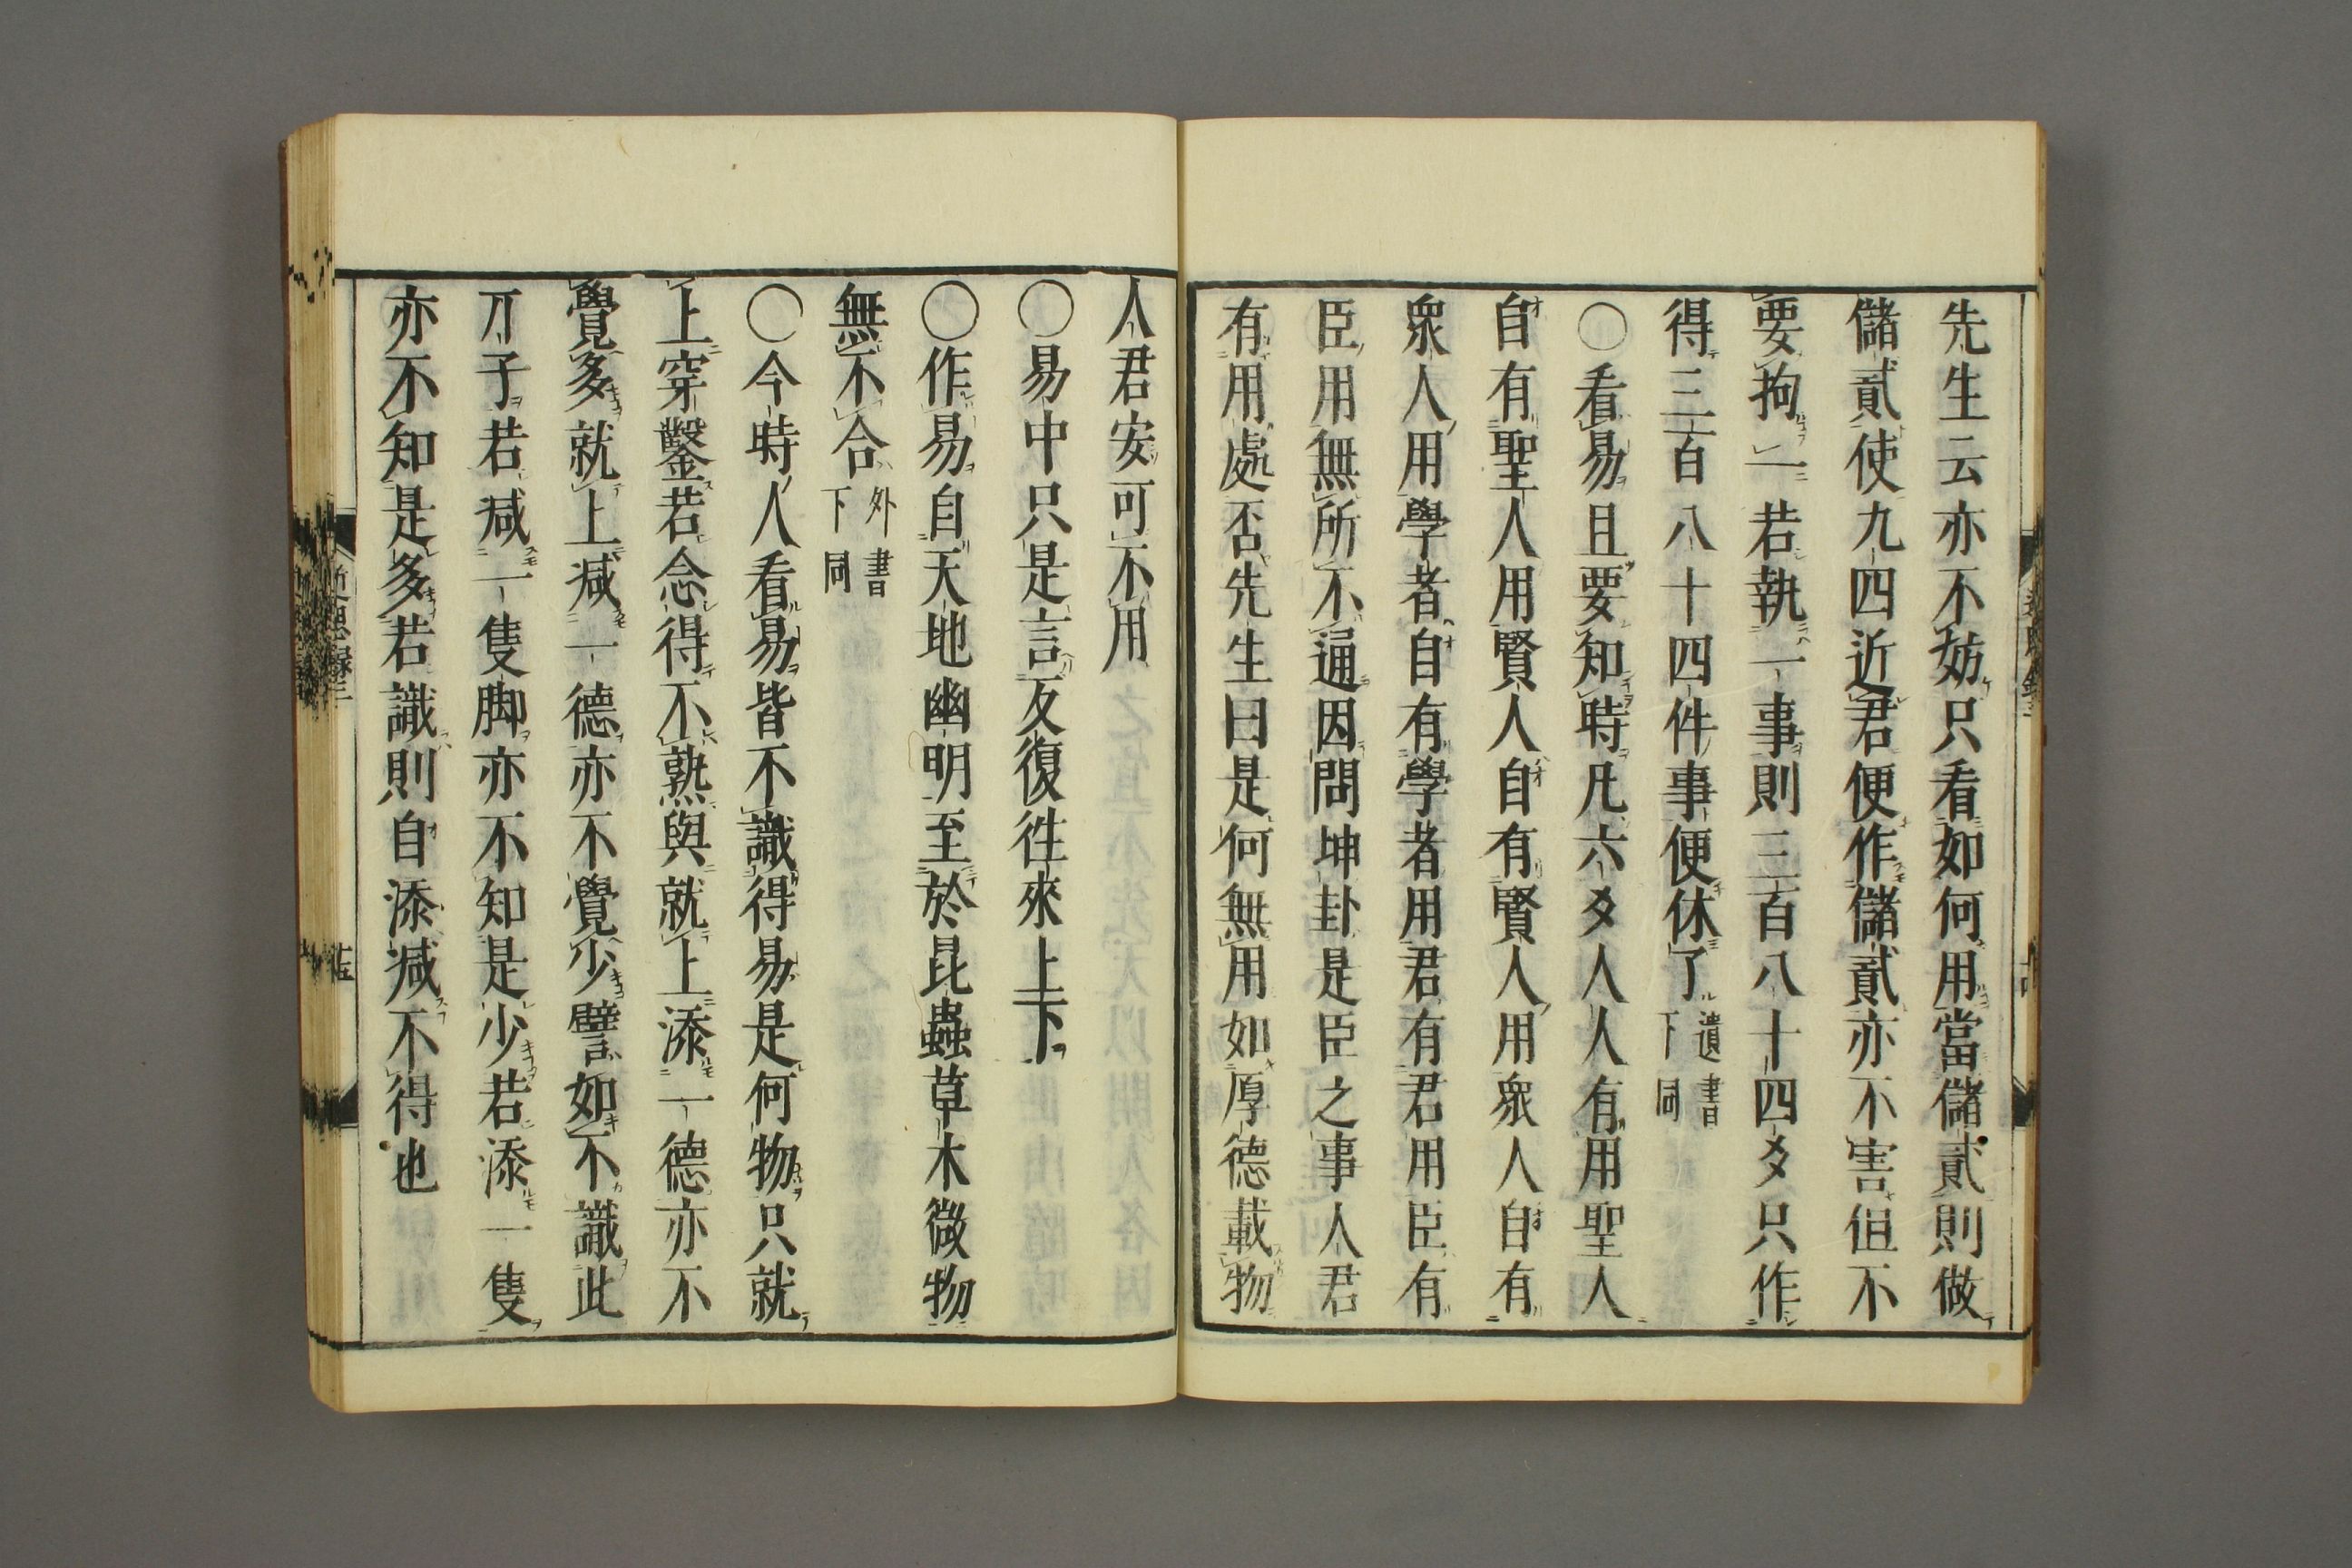 先生云亦不妨只看如何用當儲貳則做
儲貳使九四近君便作儲貳亦不害但不
要拘一若執一事則三百八十四爻只作
得三百八十四件事便休了遺書下同
○看易且要知時凡六爻人人有用聖人
自有聖人用賢人自有賢人用衆人自有
衆人用學者自有學者用君有君用臣有
臣用無所不通因問坤卦是臣之事人君
有用處否先生曰是何無用如厚德載物
人君安可不用
○易中只是言反復徃來上下
○作易自天地幽明至於昆蟲草木微物
無不合外書下同
○今時人看易皆不識得易是何物只就
上穿鑿若念得不熟與就上添一德亦不
覺多就上減一德亦不覺少譬如不識此
兀子若減一隻脚亦不知是少若添一隻
亦不知是多若識則自添減不得也
近思錄三